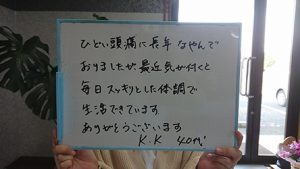 ひどい頭痛に長年なやんで
おりましたが最近気が付くと
毎日スッキリとした体調で
生活できています
ありがとうございます
K.K 40代